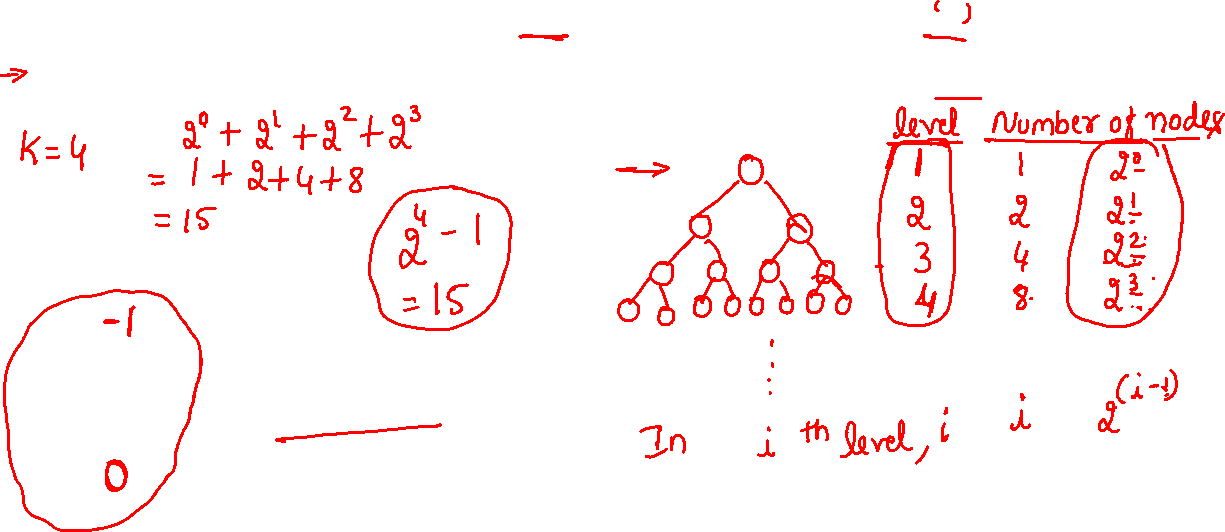 K=4
2⁰ + 2¹ + 2² + 2³
= 1 + 2 + 4 + 8
= 15
2⁴ - 1
= 15
-1
0
→
level Number of nodes
1 1 2⁰
2 2 2¹
3 4 2²
4 8 2³
In i th level, i i 2^(i-1)